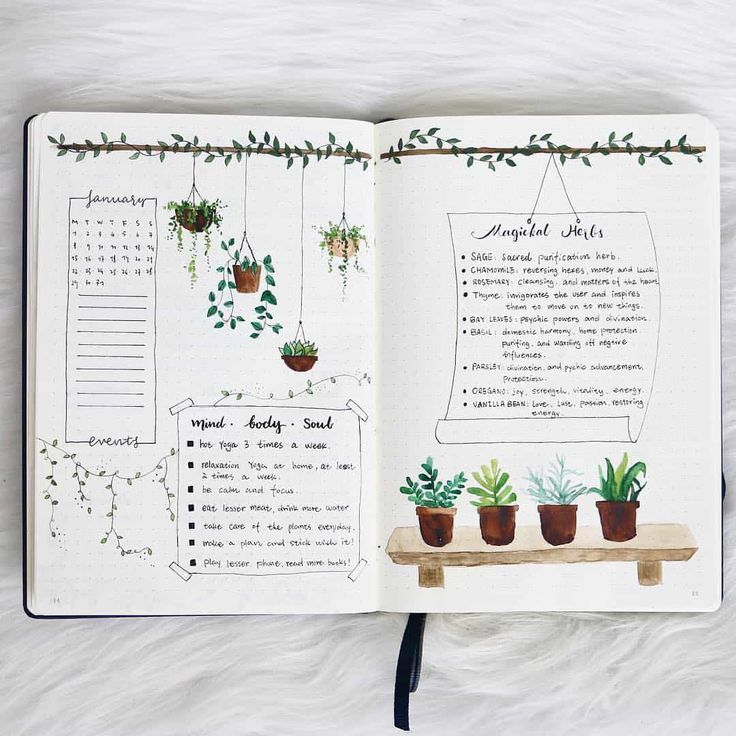 January
M T W T F S S
1 2 3 4 5 6 7
8 9 10 11 12 13 14
15 16 17 18 19 20 21
22 23 24 25 26 27 28
29 30 31
events
mind. body. Soul
hot Yoga 3 times a week.
relaxation Yoga at home, at least
2 times a week.
be calm and focus.
eat lesser meat, drink more water
take care of the plants everyday.
make a plan and stick with it!
play lesser phone, read more books!
14
Magickal Herbs
SAGE: Sacred purification herb.
CHAMOMILE: reversing hexes, money and Luck.
ROSEMARY: cleansing, and matters of the heart
Thyme: invigorates the user and inspires
them to move on to new things.
BAY LEAVES: psychic powers and divination.
BASIL: domestic harmony, home protection
purifing, and warding off negtive
influences.
PARSLEY: divination, and pychic advancement,
Protections.
OREGANO: joy, strength, vitality, energy.
VANILLA BEAN: Love, Lust, Passion, restoring
energy.